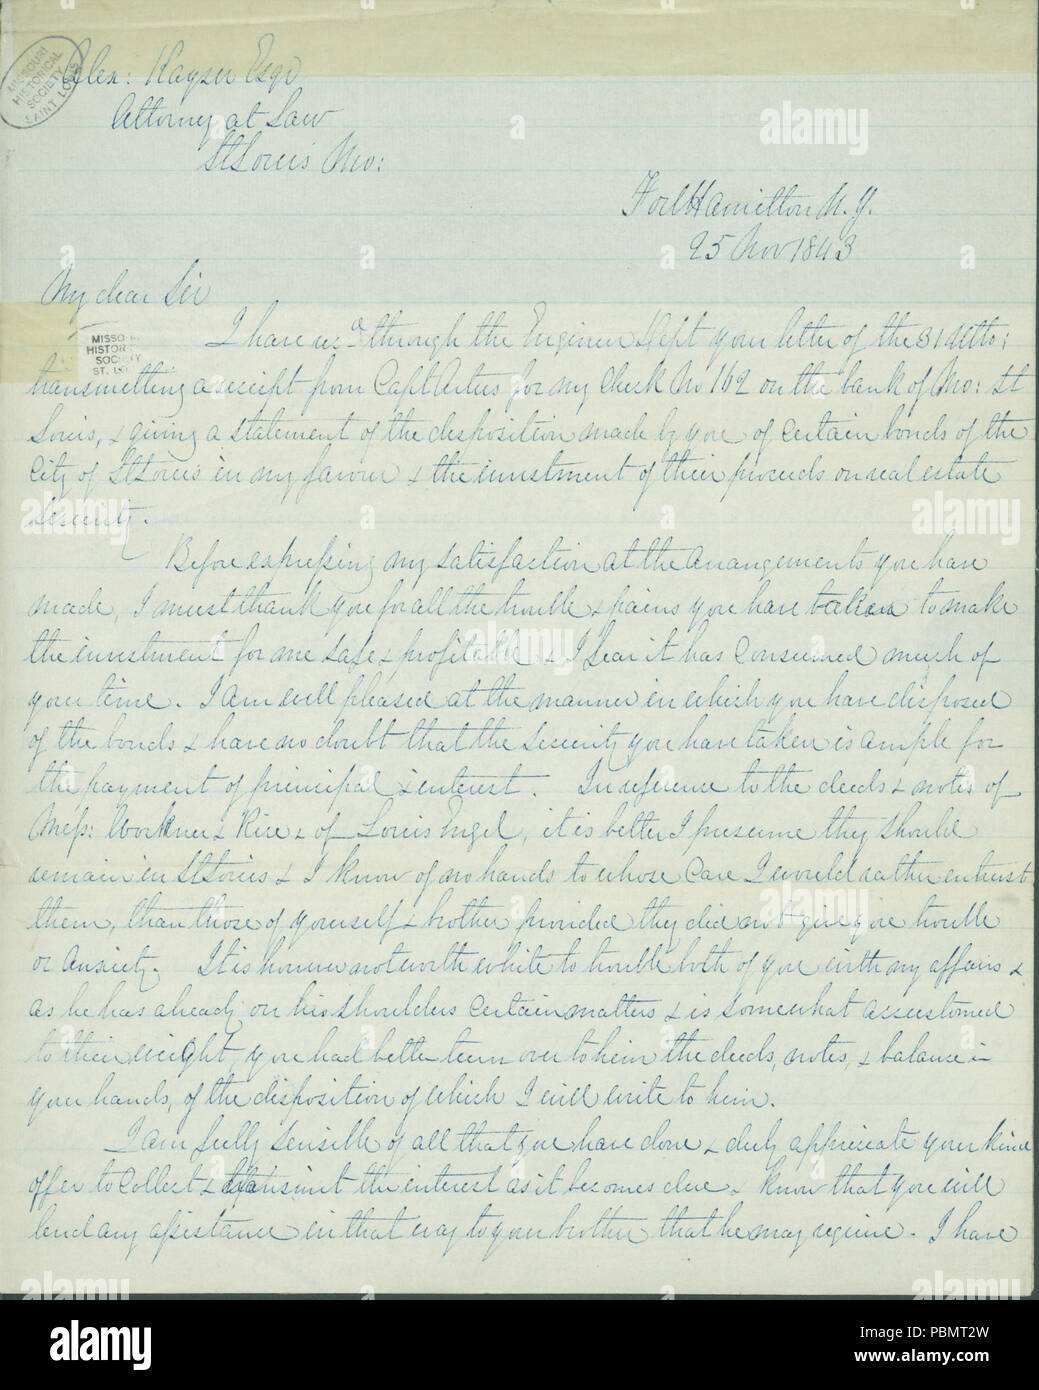 MISSOURI
HISTORICAL
SOCIETY
SAINT LOUIS
Alex: Kayser Esqr
Attorney at Law
St Louis Mo:
Fort Hamilton N. Y.
25 Nov 1843
My dear Sir
MISSO
HISTOR
SOC
ST.
I have recd through the Engineer Dept your letter of the 31 Ulto:
transmitting a receipt from Capt for my Check No 162 on the bank of Mo: St
Louis, & giving a statement of the disposition made by you of certain bonds of the
City of St Louis in my favour & the investment of their proceeds on real estate
Security.
Before expressing my satisfaction at the arrangements you have
made, I must thank you for all the trouble & pains you have taken to make
the investment for me safe & profitable & I fear it has consumed much of
your time. I am well pleased at the manner in which you have disposed
of the bonds & have no doubt that the security you have taken is ample for
the payment of principal & interest. In reference to the deeds & notes of
Mess: & Rice & of Louis Engel, it is better I presume they should
remain in St Louis & I know of no hands to whose care I would rather entrust
them, than those of yourself & brother provided they did not give you trouble
or anxiety. It is however not worth while to trouble both of you with my affairs &
as he has already on his shoulders certain matters & is somewhat accustomed
to their weight, you had better turn over to him the deeds, notes, & balance in
your hands, of the disposition of which I will write to him.
I am fully sensible of all that you have done & duly appreciate your kind
offer to collect & transmit the interest as it becomes due & know that you will
lend any assistance in that way to your brother that he may require. I have
alamy
PBMT2W
Image ID: PBMT2W
www.alamy.com